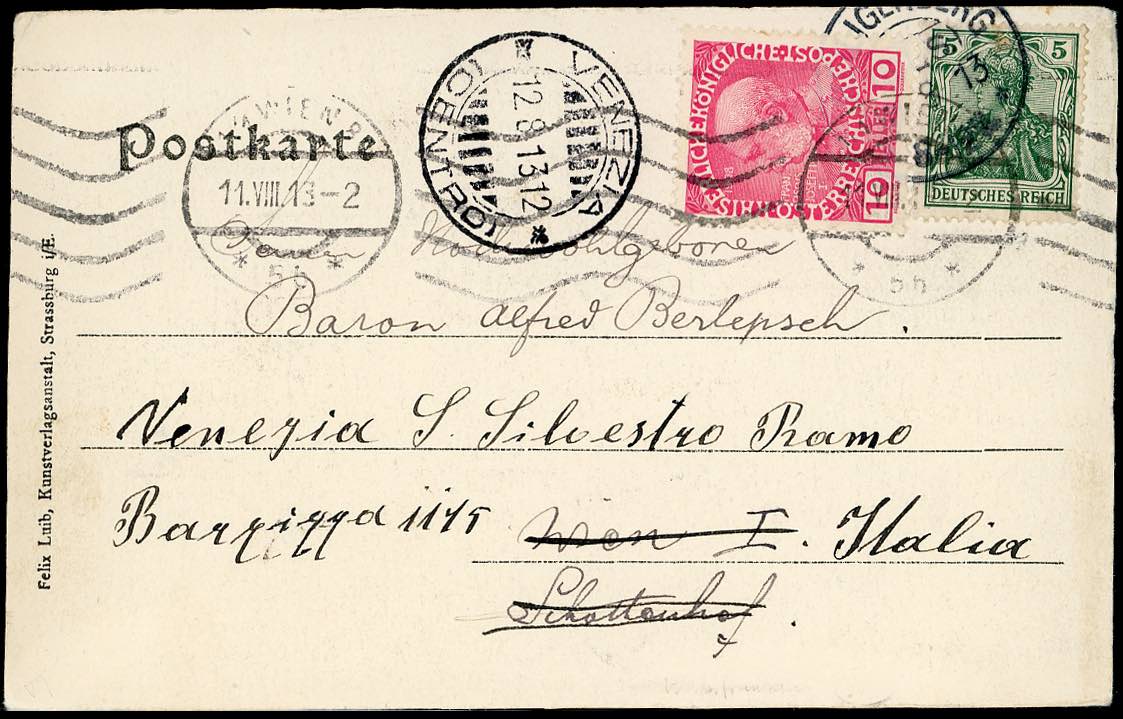 Postkarte
WIEN
11.VIII.13-2
* 5h *
VENEZIA
12.8.13 12
(CENTRO)
KAISERLICHE KÖNIGLICHE ÖSTERREICHISCHE POST
10 HELLER 10
IGERBERG
13
5 5
DEUTSCHES REICH
* 5h *
Hochwohlgeboren
Baron Alfred Berlepsch.
Venezia S. Silvestro Ramo
Barzizza 1175 Wien I. Italia
Schottenhof.
Felix Luib, Kunstverlagsanstalt, Strassburg i/E.